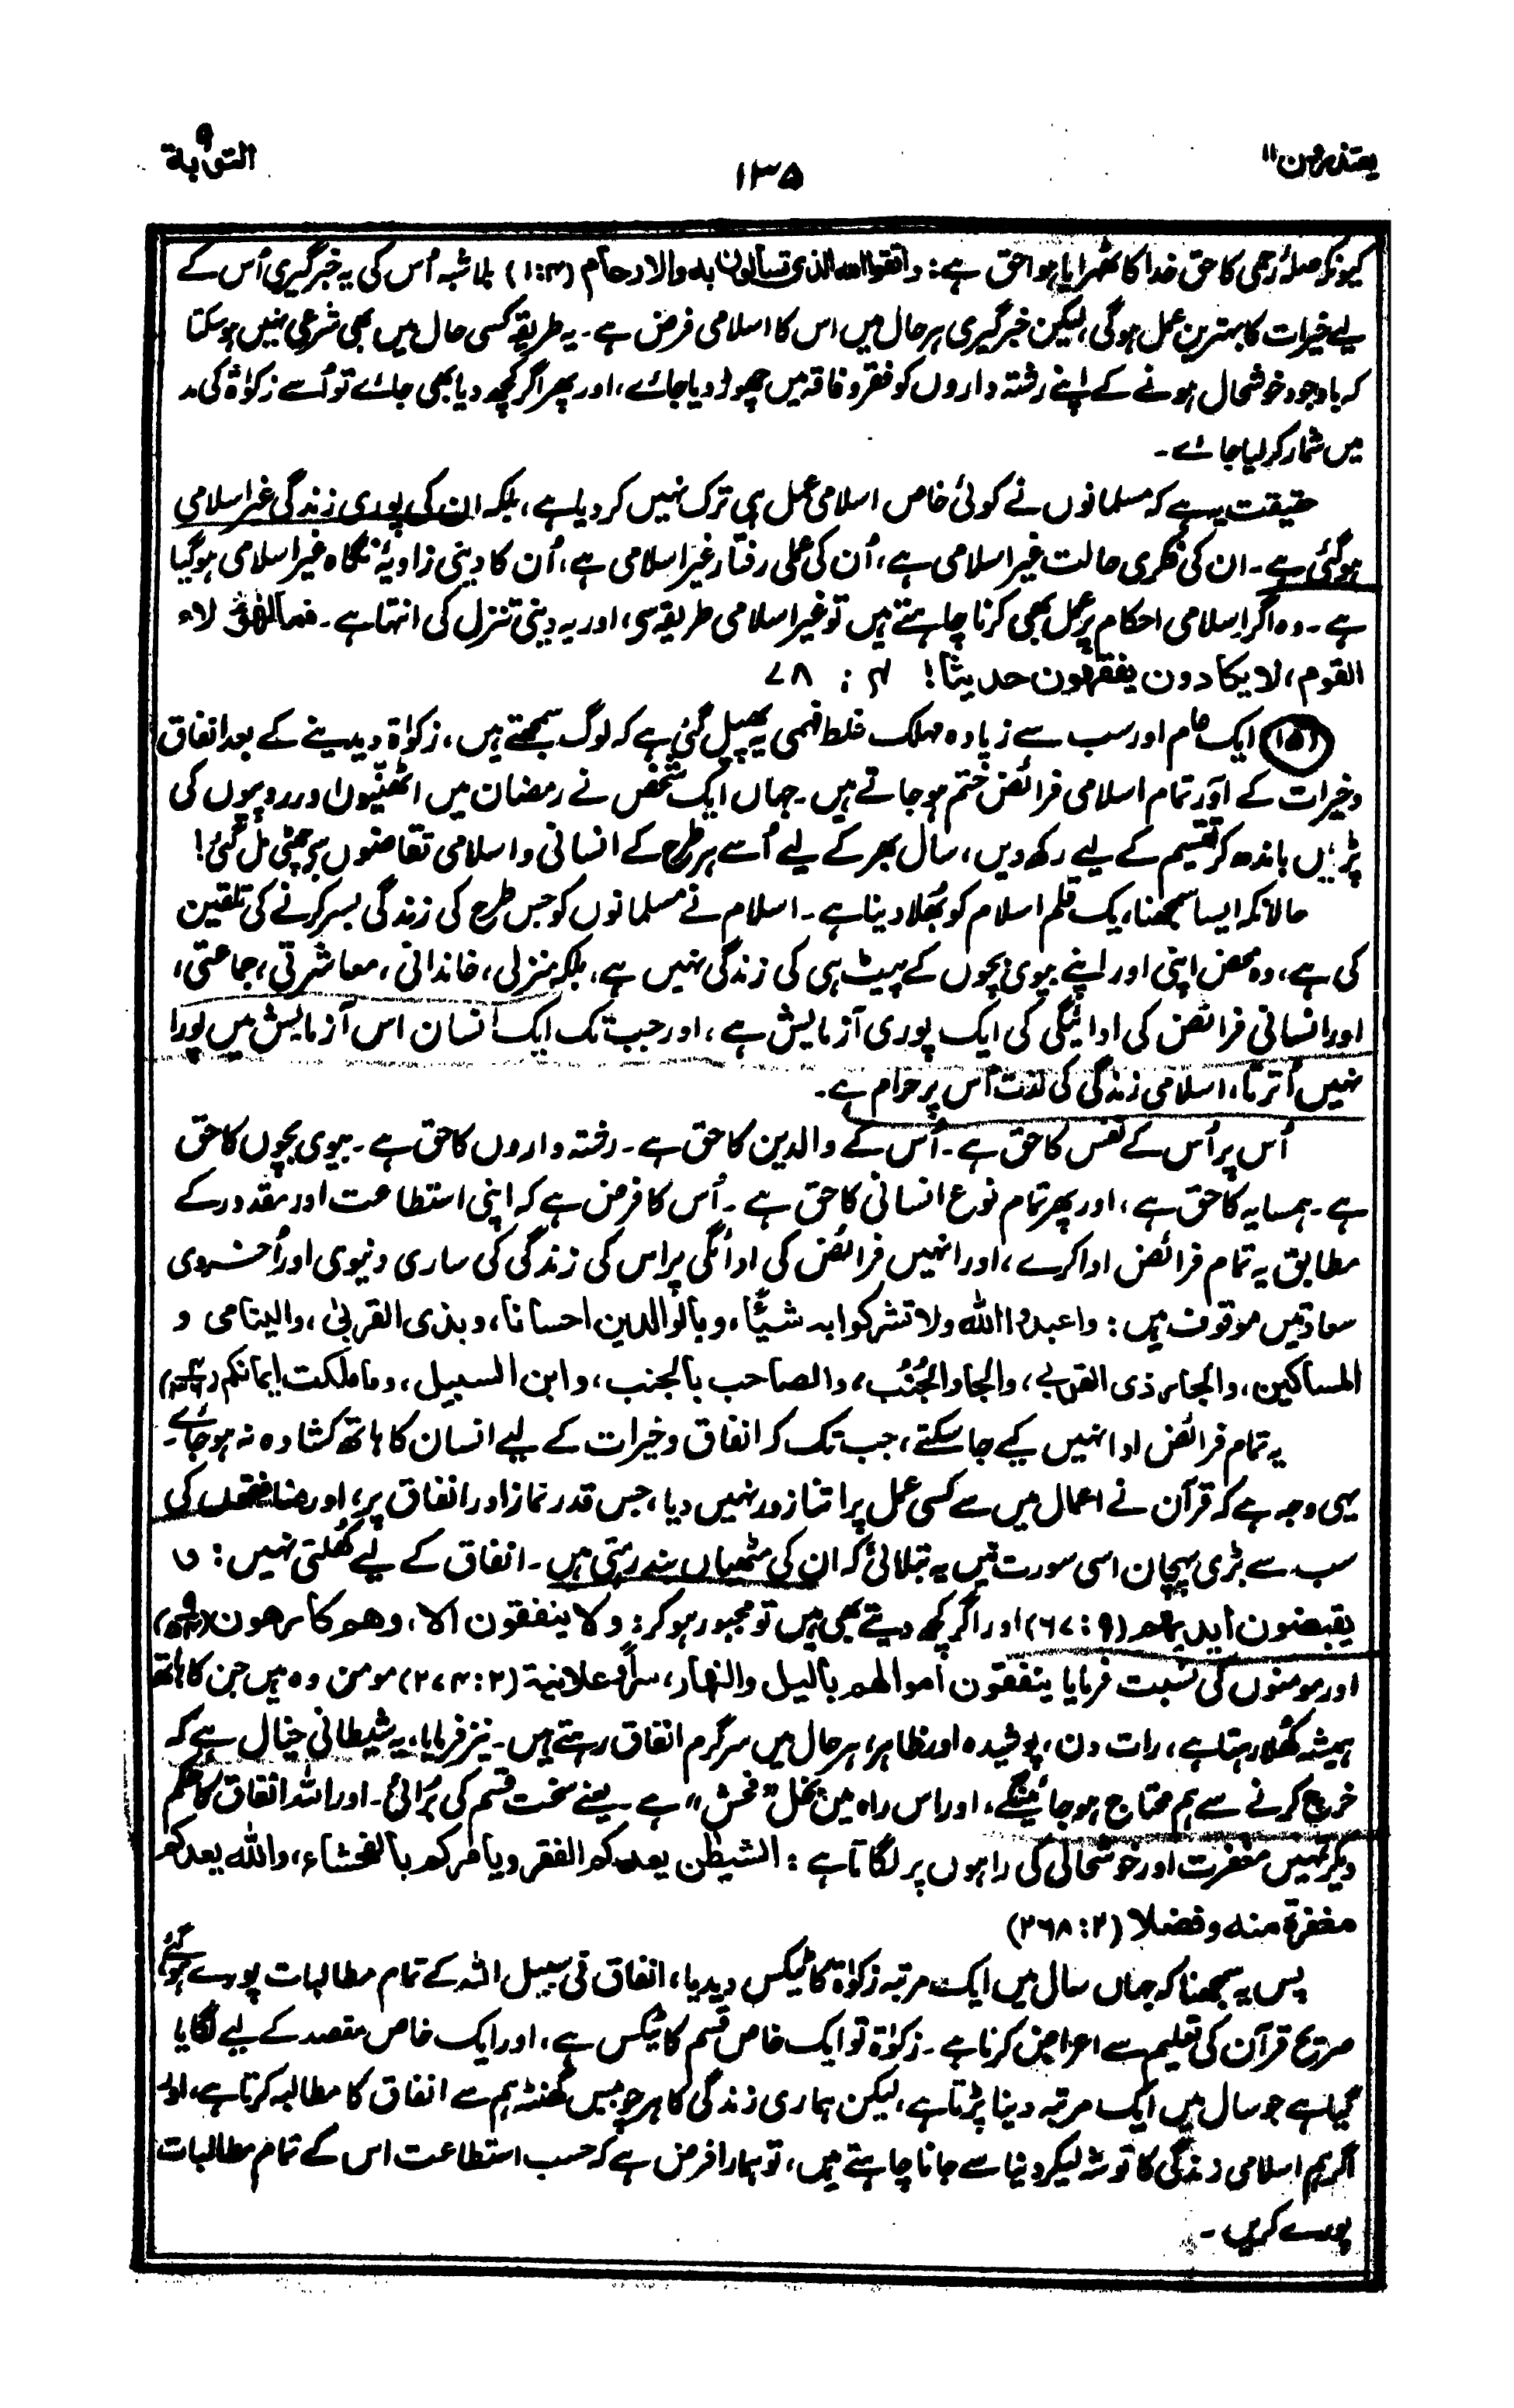 یعتذرون ۱۱
۱۳۵
التوبة ۹
کیونکہ صلۂ رحمی کا حق خدا کا ٹھرایا ہوا حق ہے: واتقوا الله الذی تساءلون به والارحام (۱:۴) بلاشبہ اُس کی یہ خبرگیری اُس کے
لیے خیرات کا بہترین عمل ہوگی، لیکن خبرگیری ہر حال میں اس کا اسلامی فرض ہے۔ یہ طریقہ کسی حال میں بھی شرعی نہیں ہوسکتا
کہ باوجود خوشحال ہونے کے اپنے رشتہ داروں کو فقر و فاقہ میں چھوڑ دیا جائے، اور پھر اگر کچھ دیا بھی جائے تو اُسے زکوٰۃ کی مد
میں شمار کرلیا جائے۔
حقیقت یہ ہے کہ مسلمانوں نے کوئی خاص اسلامی عمل ہی ترک نہیں کردیا ہے، بلکہ ان کی پوری زندگی غیر اسلامی
ہوگئی ہے۔ ان کی فکری حالت غیر اسلامی ہے، اُن کی عملی رفتار غیر اسلامی ہے، اُن کا دینی زاویۂ نگاہ غیر اسلامی ہوگیا
ہے۔ وہ اگر اسلامی احکام پر عمل بھی کرنا چاہتے ہیں تو غیر اسلامی طریقہ سے، اور یہ دینی تنزل کی انتہا ہے۔ فمال هؤلاء
القوم، لا یکادون یفقهون حدیثا! ۴ : ۷۸
(۱۵) ایک عام اور سب سے زیادہ مہلک غلط فہمی یہ پھیل گئی ہے کہ لوگ سمجھتے ہیں، زکوٰۃ دیدینے کے بعد انفاق
و خیرات کے اور تمام اسلامی فرائض ختم ہوجاتے ہیں۔ جہاں ایک شخص نے رمضان میں اٹھنّیوں اور روپیوں کی
پڑیاں باندھ کر تقسیم کے لیے رکھ دیں، سال بھر کے لیے اُسے ہر طرح کے انسانی و اسلامی تقاضوں سے چھٹی مل گئی!
حالانکہ ایسا سمجھنا، یک قلم اسلام کو بھلا دینا ہے۔ اسلام نے مسلمانوں کو جس طرح کی زندگی بسر کرنے کی تلقین
کی ہے، وہ محض اپنی اور اپنے بیوی بچوں کے پیٹ ہی کی زندگی نہیں ہے، بلکہ منزلی، خاندانی، معاشرتی، جماعتی،
اور انسانی فرائض کی ادائیگی کی ایک پوری آزمایش ہے، اور جب تک ایک انسان اس آزمایش میں پورا
نہیں اُترتا، اسلامی زندگی کی لذت اُس پر حرام ہے۔
اُس پر اُس کے نفس کا حق ہے۔ اُس کے والدین کا حق ہے۔ رشتہ داروں کا حق ہے۔ بیوی بچوں کا حق
ہے۔ ہمسایہ کا حق ہے، اور پھر تمام نوع انسانی کا حق ہے۔ اُس کا فرض ہے کہ اپنی استطاعت اور مقدور کے
مطابق یہ تمام فرائض ادا کرے، اور انہیں فرائض کی ادائگی پر اس کی زندگی کی ساری دنیوی اور اُخروی
سعادتیں موقوف ہیں: واعبدوا الله ولا تشرکوا به شیئًا، وبالوالدین احسانا، وبذی القربیٰ، والیتامی و
المساکین، والجار ذی القربی، والجار الجُنُب، والصاحب بالجنب، وابن السبیل، وما ملکت ایمانکم (۴:۳۶)
یہ تمام فرائض ادا نہیں کیے جاسکتے، جب تک کہ انفاق و خیرات کے لیے انسان کا ہاتھ کشادہ نہ ہوجائے۔
یہی وجہ ہے کہ قرآن نے اعمال میں سے کسی عمل پر اتنا زور نہیں دیا، جس قدر نماز اور انفاق پر، اور منافقوں کی
سب سے بڑی پہچان اسی سورت میں یہ بتلائی کہ ان کی مٹھیاں بند رہتی ہیں۔ انفاق کے لیے کُھلتی نہیں: و
یقبضون ایدیهم (۹:۶۷) اور اگر کچھ دیتے بھی ہیں تو مجبور ہوکر: ولا ینفقون الا، وهم کارهون (۹:۵۴)
اور مومنوں کی نسبت فرمایا ینفقون اموالهم باللیل والنهار، سرًّا وعلانیة (۲:۲۷۴) مومن وہ ہیں جن کا ہاتھ
ہمیشہ کُھلا رہتا ہے، رات دن، پوشیدہ اور ظاہر، ہر حال میں سرگرم انفاق رہتے ہیں۔ نیز فرمایا، یہ شیطانی خیال ہے کہ
خرچ کرنے سے ہم محتاج ہوجائینگے، اور اس راہ میں بخل "فحش" ہے۔ یعنے سخت قسم کی بُرائی۔ اور اللہ انفاق کا حکم
دیکر تمہیں مغفرت اور خوشحالی کی راہوں پر لگاتا ہے: الشیطٰن یعدکم الفقر ویامرکم بالفحشاء، والله یعدکم
مغفرة منه وفضلا (۲:۲۶۸)
پس یہ سمجھنا کہ جہاں سال میں ایک مرتبہ زکوٰۃ کا ٹیکس دیدیا، انفاق فی سبیل اللہ کے تمام مطالبات پورے ہوگئے
صریح قرآن کی تعلیم سے اعراض کرنا ہے۔ زکوٰۃ تو ایک خاص قسم کا ٹیکس ہے، اور ایک خاص مقصد کے لیے لگایا
گیا ہے جو سال میں ایک مرتبہ دینا پڑتا ہے، لیکن ہماری زندگی کا ہر چوبیس گھنٹہ ہم سے انفاق کا مطالبہ کرتا ہے، اور
اگر ہم اسلامی زندگی کا توشہ لیکر دنیا سے جانا چاہتے ہیں، تو ہمارا فرض ہے کہ حسب استطاعت اس کے تمام مطالبات
پورے کریں۔